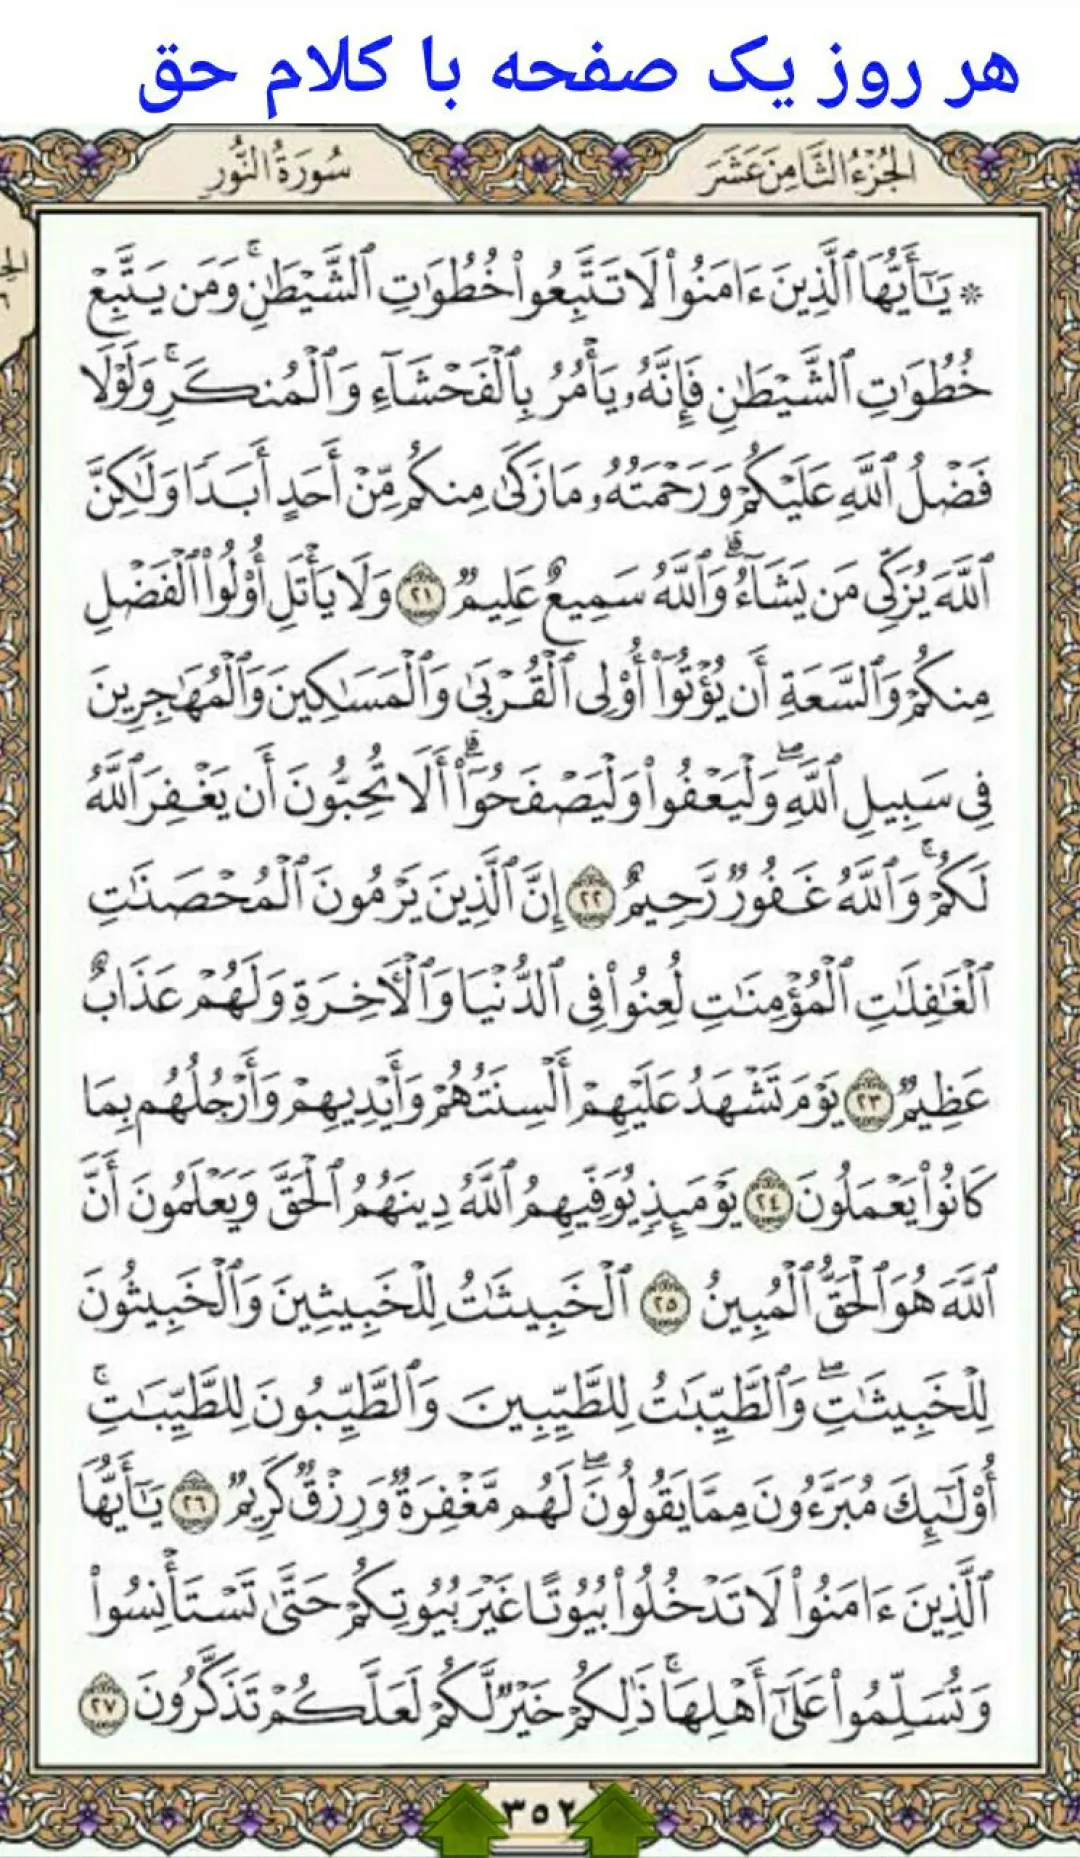 هر روز یک صفحه با کلام حق
الجُزْءُ الثَّامِنَ عَشَرَ
سُورَةُ النُّور
۞ يَـٰٓأَيُّهَا ٱلَّذِينَ ءَامَنُوا۟ لَا تَتَّبِعُوا۟ خُطُوَٰتِ ٱلشَّيْطَـٰنِ ۚ وَمَن يَتَّبِعْ
خُطُوَٰتِ ٱلشَّيْطَـٰنِ فَإِنَّهُۥ يَأْمُرُ بِٱلْفَحْشَآءِ وَٱلْمُنكَرِ ۚ وَلَوْلَا
فَضْلُ ٱللَّهِ عَلَيْكُمْ وَرَحْمَتُهُۥ مَا زَكَىٰ مِنكُم مِّنْ أَحَدٍ أَبَدًا وَلَـٰكِنَّ
ٱللَّهَ يُزَكِّى مَن يَشَآءُ ۗ وَٱللَّهُ سَمِيعٌ عَلِيمٌ ٢١ وَلَا يَأْتَلِ أُو۟لُوا۟ ٱلْفَضْلِ
مِنكُمْ وَٱلسَّعَةِ أَن يُؤْتُوٓا۟ أُو۟لِى ٱلْقُرْبَىٰ وَٱلْمَسَـٰكِينَ وَٱلْمُهَـٰجِرِينَ
فِى سَبِيلِ ٱللَّهِ ۖ وَلْيَعْفُوا۟ وَلْيَصْفَحُوٓا۟ ۗ أَلَا تُحِبُّونَ أَن يَغْفِرَ ٱللَّهُ
لَكُمْ ۚ وَٱللَّهُ غَفُورٌ رَّحِيمٌ ٢٢ إِنَّ ٱلَّذِينَ يَرْمُونَ ٱلْمُحْصَنَـٰتِ
ٱلْغَـٰفِلَـٰتِ ٱلْمُؤْمِنَـٰتِ لُعِنُوا۟ فِى ٱلدُّنْيَا وَٱلْـَٔاخِرَةِ وَلَهُمْ عَذَابٌ
عَظِيمٌ ٢٣ يَوْمَ تَشْهَدُ عَلَيْهِمْ أَلْسِنَتُهُمْ وَأَيْدِيهِمْ وَأَرْجُلُهُم بِمَا
كَانُوا۟ يَعْمَلُونَ ٢٤ يَوْمَئِذٍ يُوَفِّيهِمُ ٱللَّهُ دِينَهُمُ ٱلْحَقَّ وَيَعْلَمُونَ أَنَّ
ٱللَّهَ هُوَ ٱلْحَقُّ ٱلْمُبِينُ ٢٥ ٱلْخَبِيثَـٰتُ لِلْخَبِيثِينَ وَٱلْخَبِيثُونَ
لِلْخَبِيثَـٰتِ ۖ وَٱلطَّيِّبَـٰتُ لِلطَّيِّبِينَ وَٱلطَّيِّبُونَ لِلطَّيِّبَـٰتِ ۚ
أُو۟لَـٰٓئِكَ مُبَرَّءُونَ مِمَّا يَقُولُونَ ۖ لَهُم مَّغْفِرَةٌ وَرِزْقٌ كَرِيمٌ ٢٦ يَـٰٓأَيُّهَا
ٱلَّذِينَ ءَامَنُوا۟ لَا تَدْخُلُوا۟ بُيُوتًا غَيْرَ بُيُوتِكُمْ حَتَّىٰ تَسْتَأْنِسُوا۟
وَتُسَلِّمُوا۟ عَلَىٰٓ أَهْلِهَا ۚ ذَٰلِكُمْ خَيْرٌ لَّكُمْ لَعَلَّكُمْ تَذَكَّرُونَ ٢٧
٣٥٢